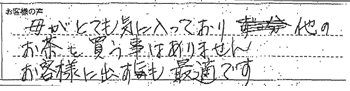 お客様の声
母がとても気に入っており 他の
お茶を買う事はありません
お客様に出すにも最適です